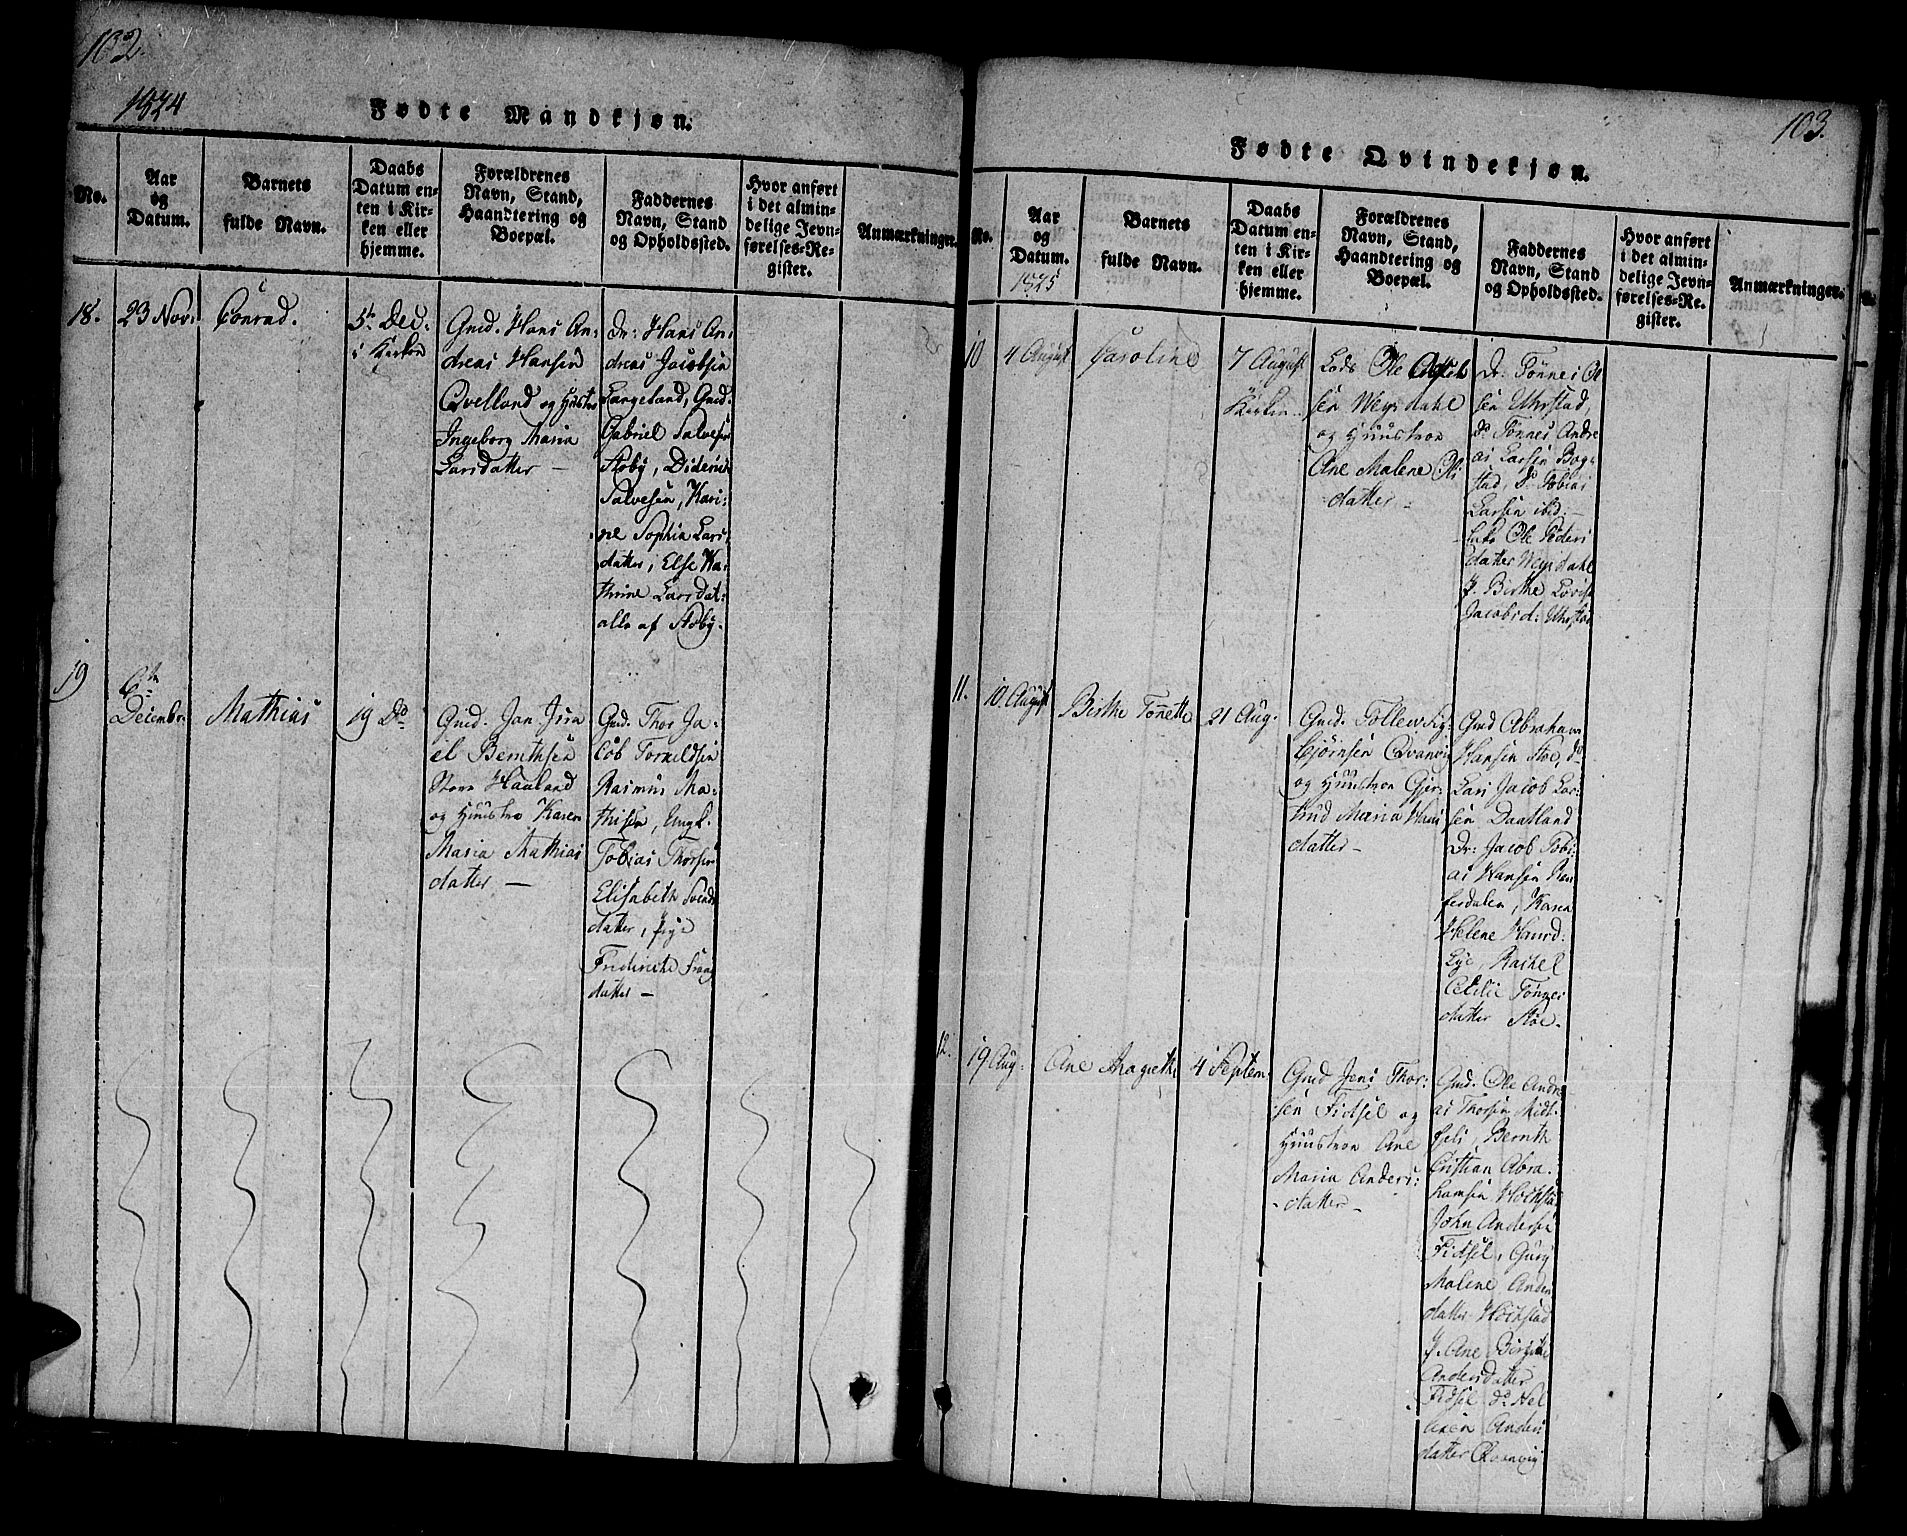 102
1824
Fødte Mandkjøn.
No.
Aar
og
Datum.
Barnets
fulde Navn.
Daabs
Datum en-
ten i Kir-
ken eller
hjemme.
Forældrenes
Navn, Stand,
Haandtering og
Boepæl.
Faddernes
Navn, Stand
og Opholdssted.
Hvor anført
i det almin-
delige Jevn-
førelses-Re-
gister.
Anmærkninger.
18.
23 Nov:
Conrad.
5te Dec:
i Kirken
Gmd. Hans An-
dreas Hansen
Qvelland og Hustro
Ingeborg Maria
Larsdatter —
Dr: Hans An-
dreas Jacobsen
Langeland, Gmd.
Gabriel Salvesen
Stoby, Diderik
Salvesen, Kari-
ne Sophia Lars-
datter, Else Ka-
thrine Larsdat:
alle af Stoby.
19
6te
Decembr:
Mathias
19 Do
Gmd. Jan Isra
el Bernthsen
Store Haaland
og Huustro Karen
Maria Mathias
datter —
Gmd. Thor Ja-
cob Torkildsen
Rasmus Ma-
thisen, Ungk.
Tobias Thorsen
Elisabeth Svends
datter, pige
Fredericke Frans
datter —
103.
Fødte Qvindekjøn.
No.
Aar
og
Datum.
1825
Barnets
fulde Navn.
Daabs
Datum en-
ten i Kir-
ken eller
hjemme.
Forældrenes
Navn, Stand,
Haandtering og
Boepæl.
Faddernes
Navn, Stand
og Opholdssted.
Hvor anført
i det almin-
delige Jevn-
førelses-Re-
gister.
Anmærkninger.
10
4 August
Caroline
7 August
Kirken
Lods Ole
sen Weysdahl
og Huustroe
Ane Malene Ols
datter —
Dr: Tønnes Ol
sen Uhrstad,
do Tønnes Andre
as Larsen Bog-
stad, Do Tobias
Larsen ibid. —
Ole Peders
datter Weysdahl
P. Birthe Lovise
Jacobsd: Uhrstad
11.
10 August
Birthe Tonette
21 Aug.
Gmd. Tollev Sig-
bjørnsen Qvanvig
og Huustroe Gjer-
trud Maria Hans
datter —
Gmd Abraham
Hansen Stoe, do
Lars Jacob Lar-
sen Daatland
Dr: Jacob Tobi-
as Hansen
Karen
Helene Haard:
Eye, Rachel
Cecilie Tønnes
datter Stoe.
12.
19 Aug:
Ane Magrethe
4 Septem.
Gmd Jens Thor-
sen Fidsel og
Huustroe Ane
Maria Anders-
datter —
Gmd. Ole Andre
as Thorsen Midt-
Bernth
Cristian Abra-
hamsen Hochstad
John Andersen
Fidsel, Gury
Malene Anders
datter Hochstad
P. Ane Birgitte
Andersdatter
Fidsel do Hel
Anders
datter Qvanvig